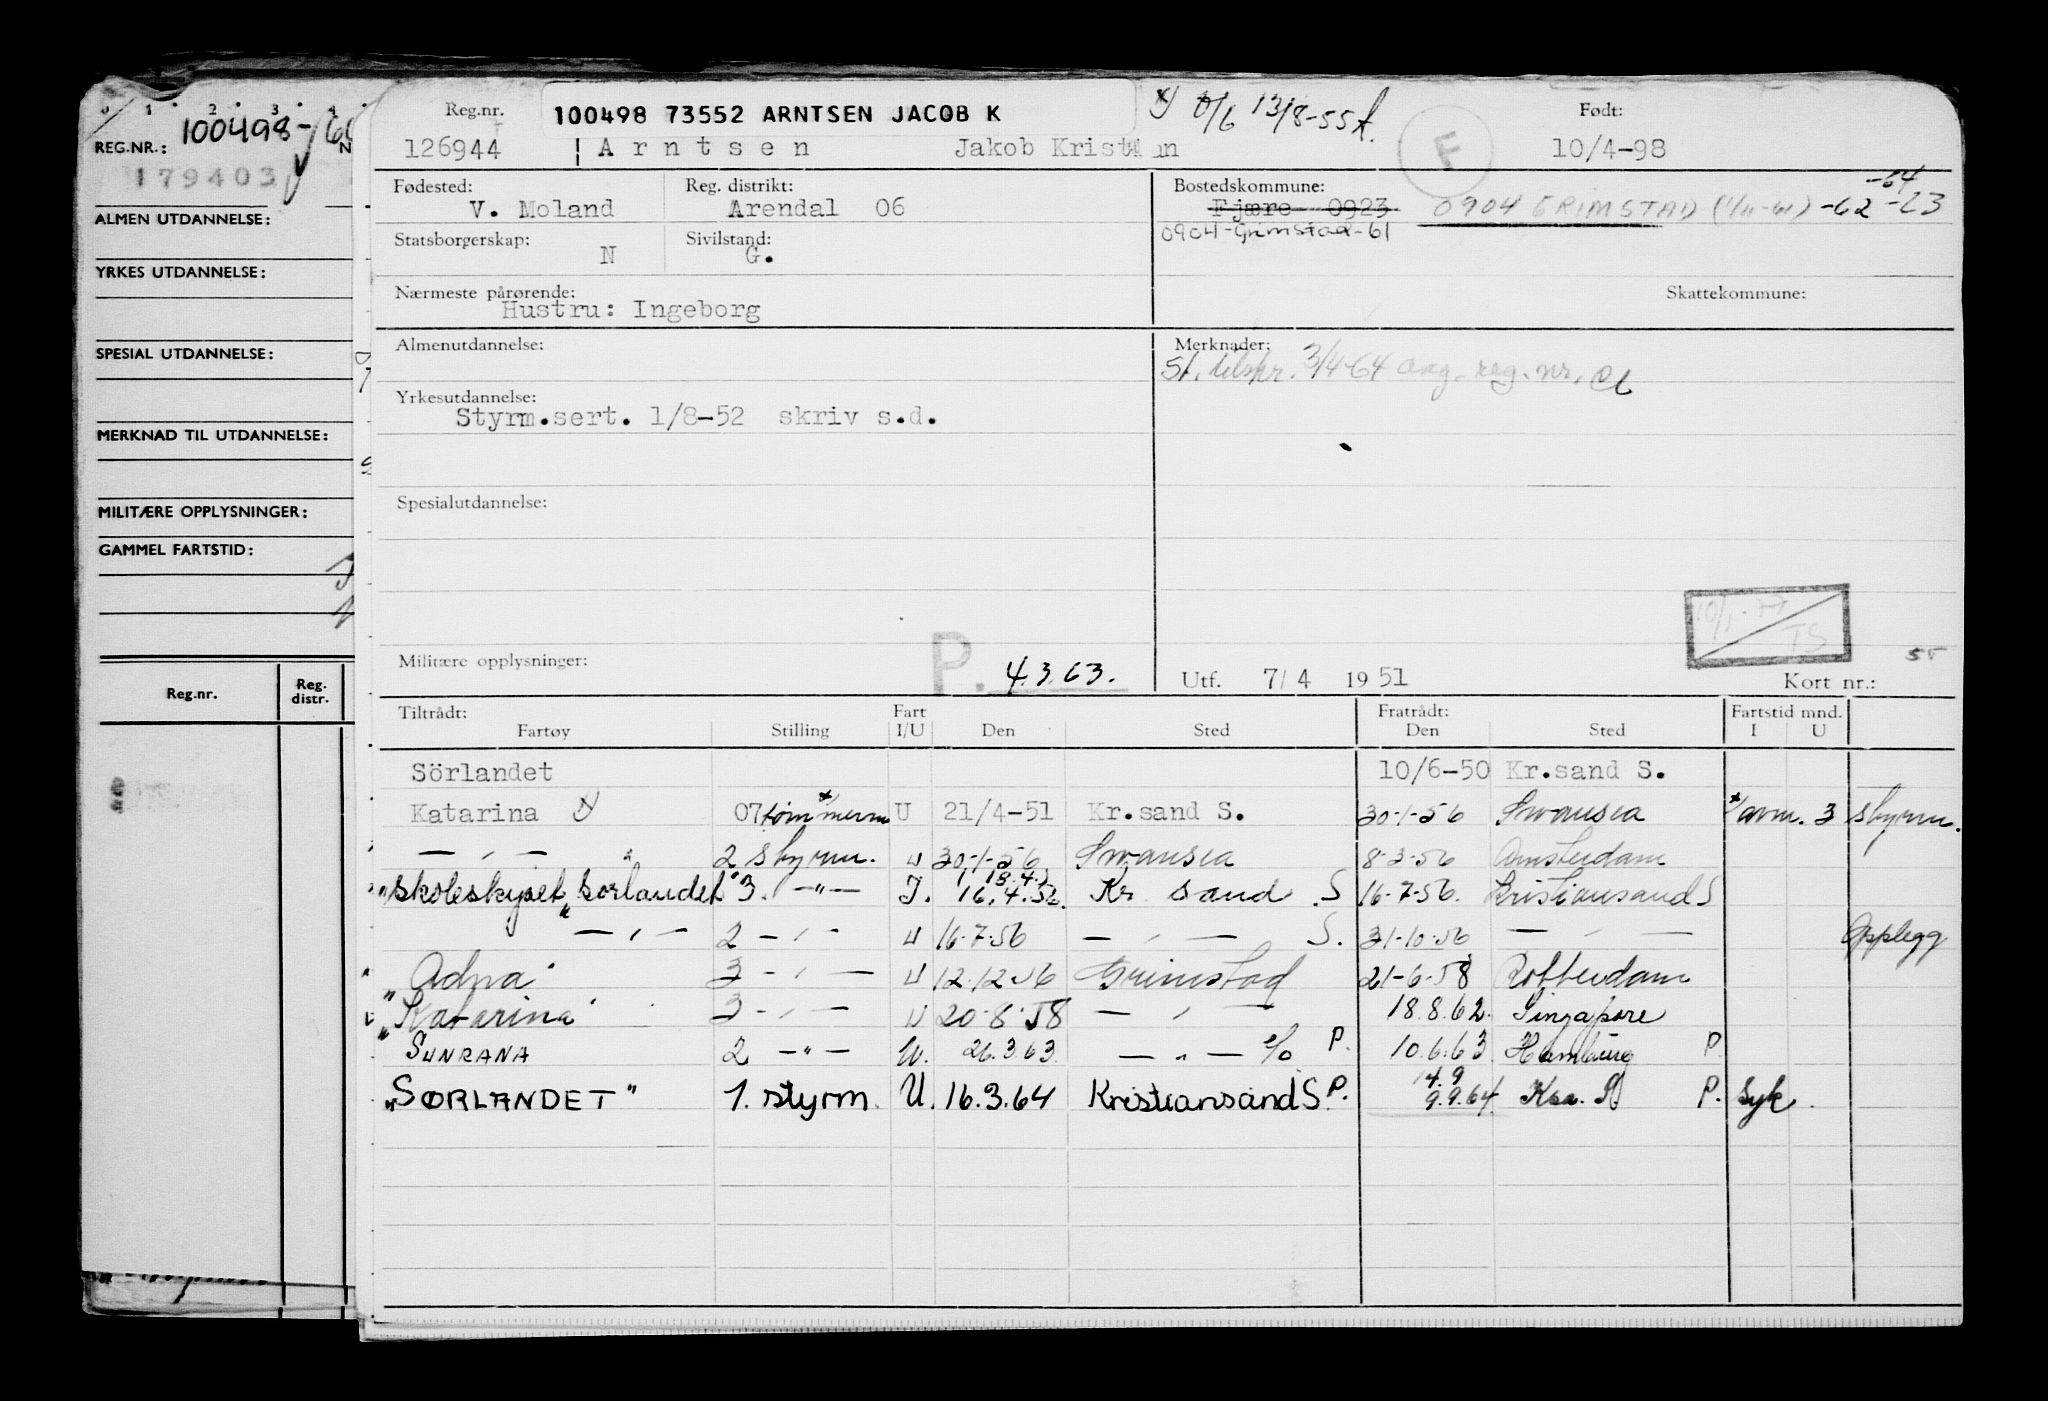 0 1 2 3 4
REG.NR.: 100498-
179403
ALMEN UTDANNELSE:
YRKES UTDANNELSE:
SPESIAL UTDANNELSE:
MERKNAD TIL UTDANNELSE:
MILITÆRE OPPLYSNINGER:
GAMMEL FARTSTID:
Reg.nr. Reg. distr.
Reg.nr. 100498 73552 ARNTSEN JACOB K 0/6 13/8-55 Født:
126944 Arntsen Jakob Kristian F 10/4-98
Fødested: Reg. distrikt: Bostedskommune: -64
V. Moland Arendal 06 Fjære 0923 0904 GRIMSTAD (1/11-61) -62 -63
Statsborgerskap: Sivilstand: 0904-Grimstad-61
N G.
Nærmeste pårørende: Skattekommune:
Hustru: Ingeborg
Almenutdannelse: Merknader:
3/4-64 ang. reg. nr.
Yrkesutdannelse:
Styrm.sert. 1/8-52 skriv s.d.
Spesialutdannelse:
10/1-77
TS
Militære opplysninger: P. 4.3.63. Utf. 7/4 1951 Kort nr.: 55
Tiltrådt: Fart Fratrådt: Fartstid mnd.
Fartøy Stilling I/U Den Sted Den Sted I U
Sörlandet 10/6-50 Kr.sand S.
Katarina 07 tømmerm U 21/4-51 Kr.sand S. 30-1-56 Swansea 3 styrm.
— " — 2 styrm. U 30-1-56 Swansea 8-3-56 Amsterdam
"Skoleskipet "Sørlandet" 3. —"— I. 13.4. 16.4.56. Kr sand S 16-7-56. Kristiansand S
— " — 2 — " — U 16.7.56 — " — S. 31-10-56 — " — Opplegg
"Adna" 3 — " — U 12.12.56 Grimstad 21-6-58 Rotterdam
"Katarina" 3 — " — U 20-8-58 — " — 18.8.62. Singapore
"SUNRANA 2 —"— U. 26.3.63 — " — P. 10.6.63 Hamburg P.
"SØRLANDET" 1. styrm. U. 16.3.64 Kristiansand S P. 14.9 9.9.64. Kra. S P. Syk.